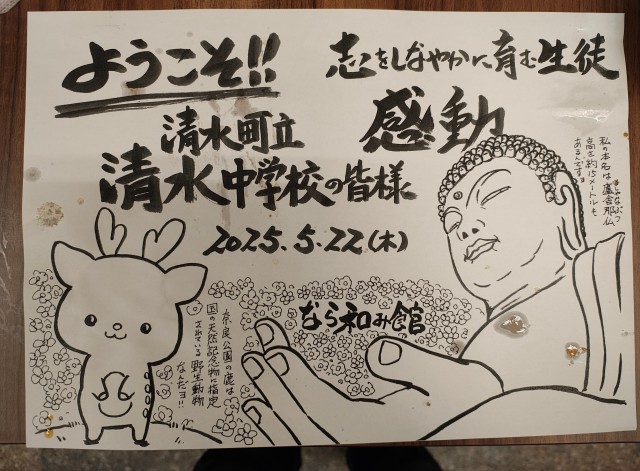 ようこそ!!
志をしなやかに育む生徒
清水町立
感動
清水中学校の皆様
2025.5.22(木)
私の本名は盧舎那仏
るしゃなぶつ
高さ約15メートルも
あるんですョ
なら和み館
奈良公園の鹿は
国の天然記念物に指定
されている野生動物
なんだヨ!!